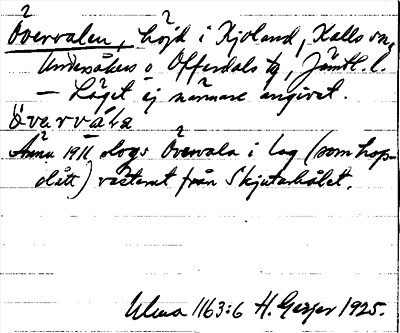 Övervalen, höjd i Kjoland, Kalls sn,
Undersåkers o Offerdals tg, Jämtl. l
— Läget ej närmare angivet.
övarvåla
Ännu 1911 slogs Övervala i lag (som hop-
slått) västerut från Skjutarhålet.
Ulma 1163:6 H. Geijer 1925.